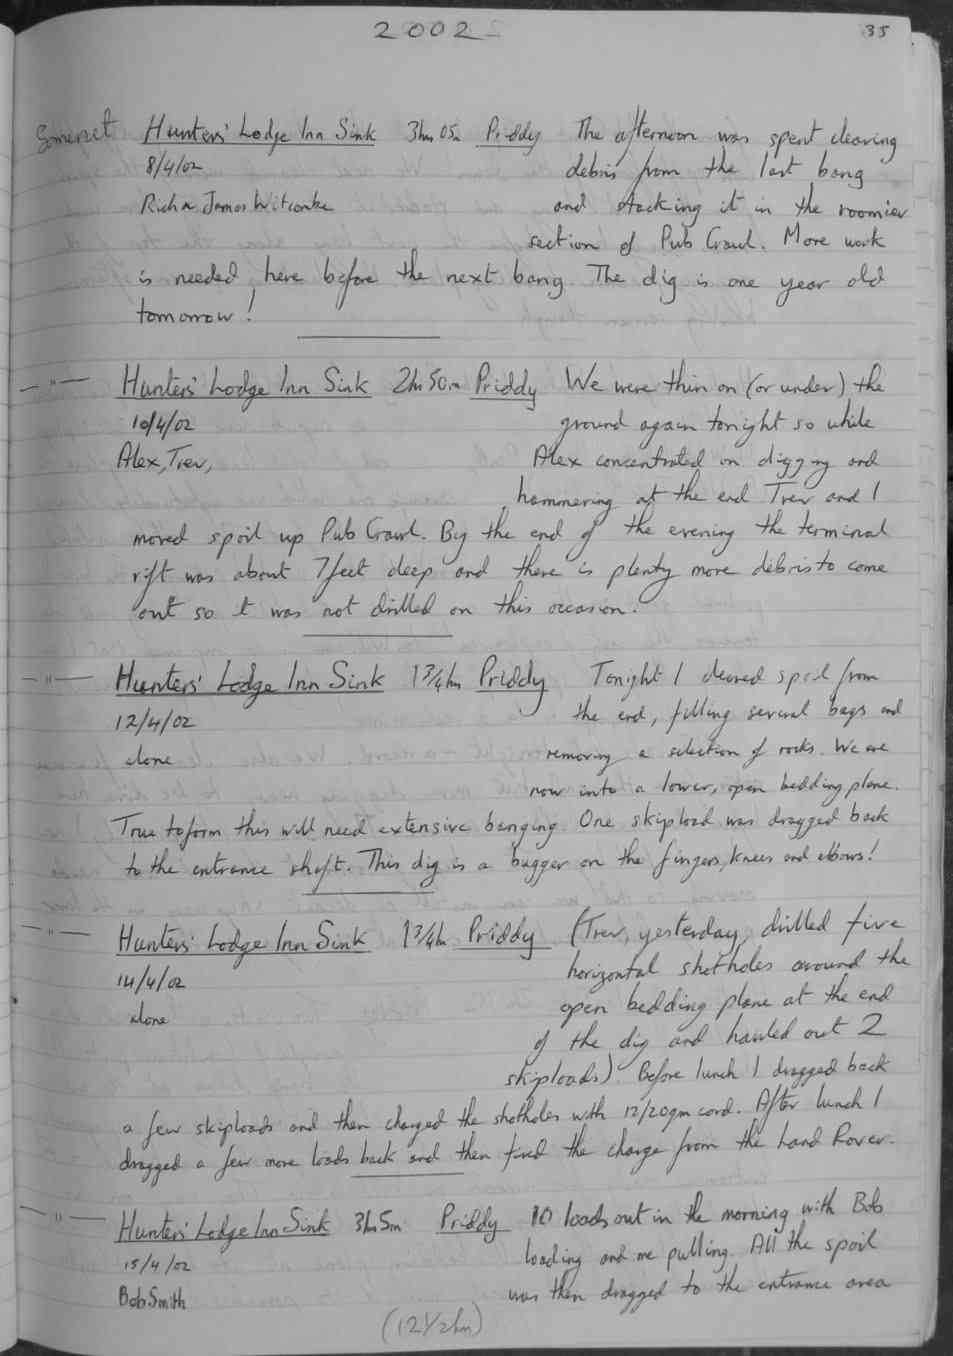 2002
35
Somerset Hunters' Lodge Inn Sink 3hrs 05m Priddy The afternoon was spent clearing
8/4/02 debris from the last bang
Rich, James Witcombe and stacking it in the roomier
section of Pub Crawl. More work
is needed here before the next bang. The dig is one year old
tomorrow!
—"— Hunters' Lodge Inn Sink 2hr 50m Priddy We were thin on (or under) the
10/4/02 ground again tonight so while
Alex, Trev, Alex concentrated on digging and
hammering at the end Trev and I
moved spoil up Pub Crawl. By the end of the evening the terminal
rift was about 7 feet deep and there is plenty more debris to come
out so it was not drilled on this occasion.
—"— Hunters' Lodge Inn Sink 1 3/4hr Priddy Tonight I cleared spoil from
12/4/02 the end, filling several bags and
alone removing a selection of rocks. We are
now into a lower, open bedding plane.
True to form this will need extensive banging. One skipload was dragged back
to the entrance shaft. This dig is a bugger on the fingers, knees and elbows!
—"— Hunters' Lodge Inn Sink 1 3/4hr Priddy (Trev, yesterday, drilled five
14/4/02 horizontal shotholes around the
alone open bedding plane at the end
of the dig and hauled out 2
skiploads). Before lunch I dragged back
a few skiploads and then charged the shotholes with 12/20gm cord. After lunch I
dragged a few more loads back and then fired the charge from the Land Rover.
—"— Hunters' Lodge Inn Sink 3hr 5m Priddy 10 loads out in the morning with Bob
15/4/02 loading and me pulling. All the spoil
Bob Smith was then dragged to the entrance area
(12 1/2hr)